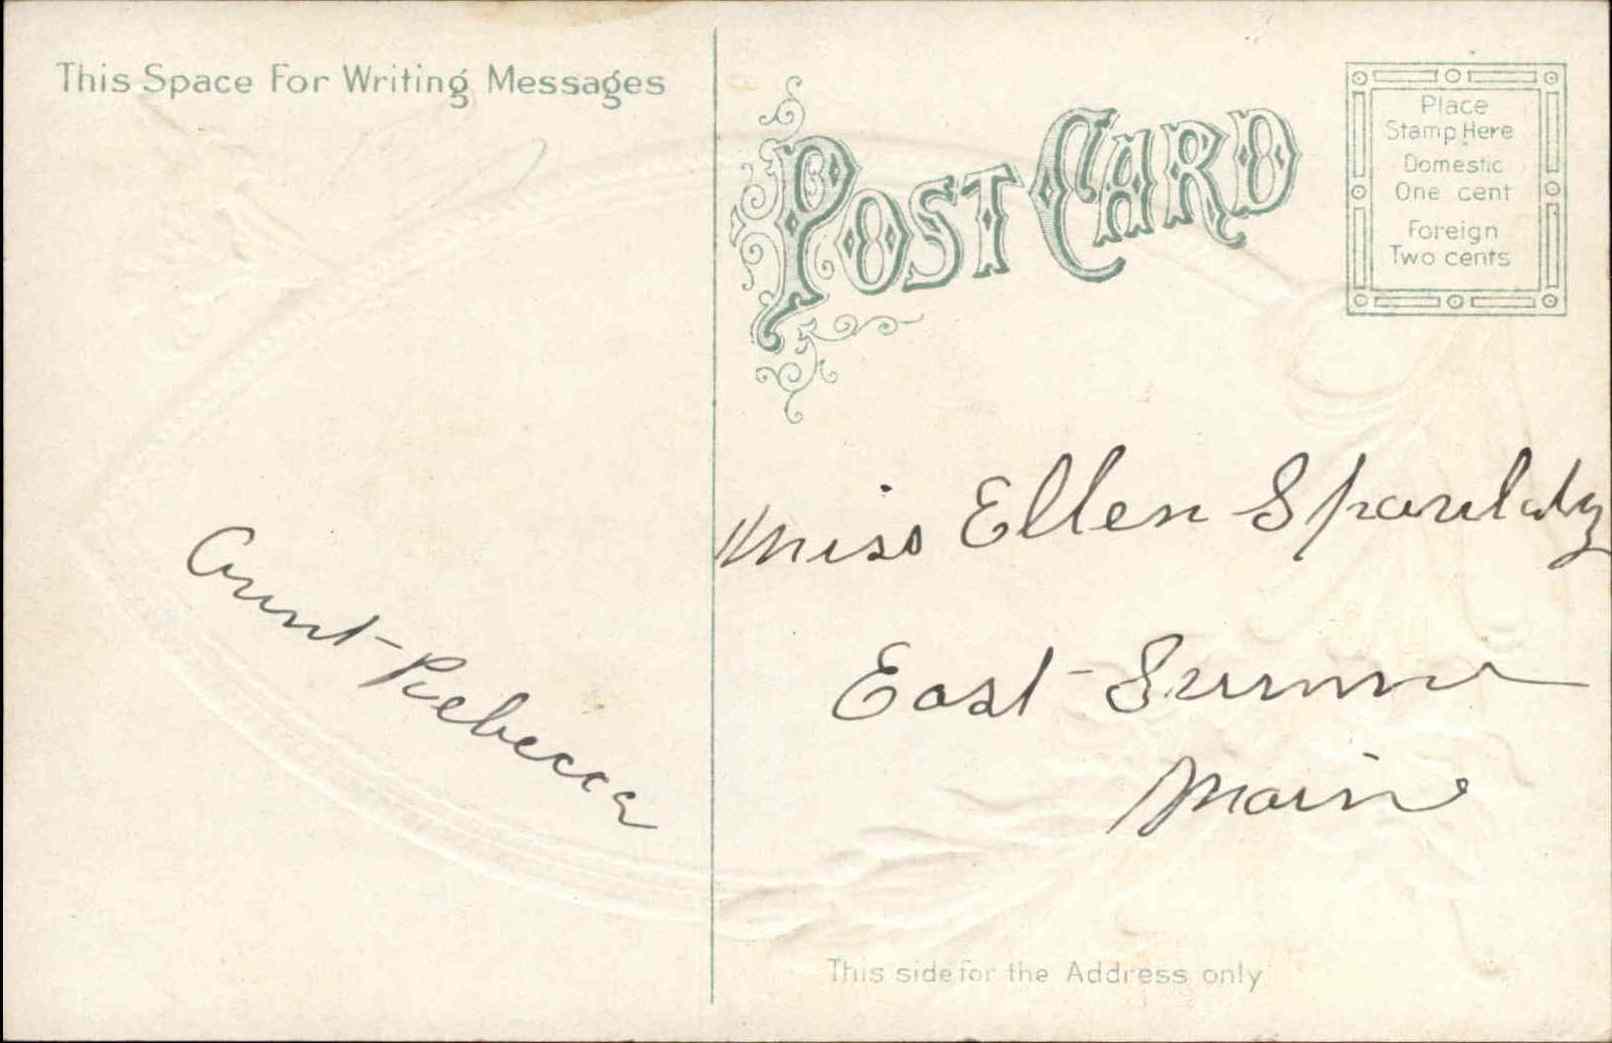 This Space For Writing Messages
POST CARD
Place
Stamp Here
Domestic
One cent
Foreign
Two cents
Aunt Rebecca
Miss Ellen
East
Maine
This side for the Address only